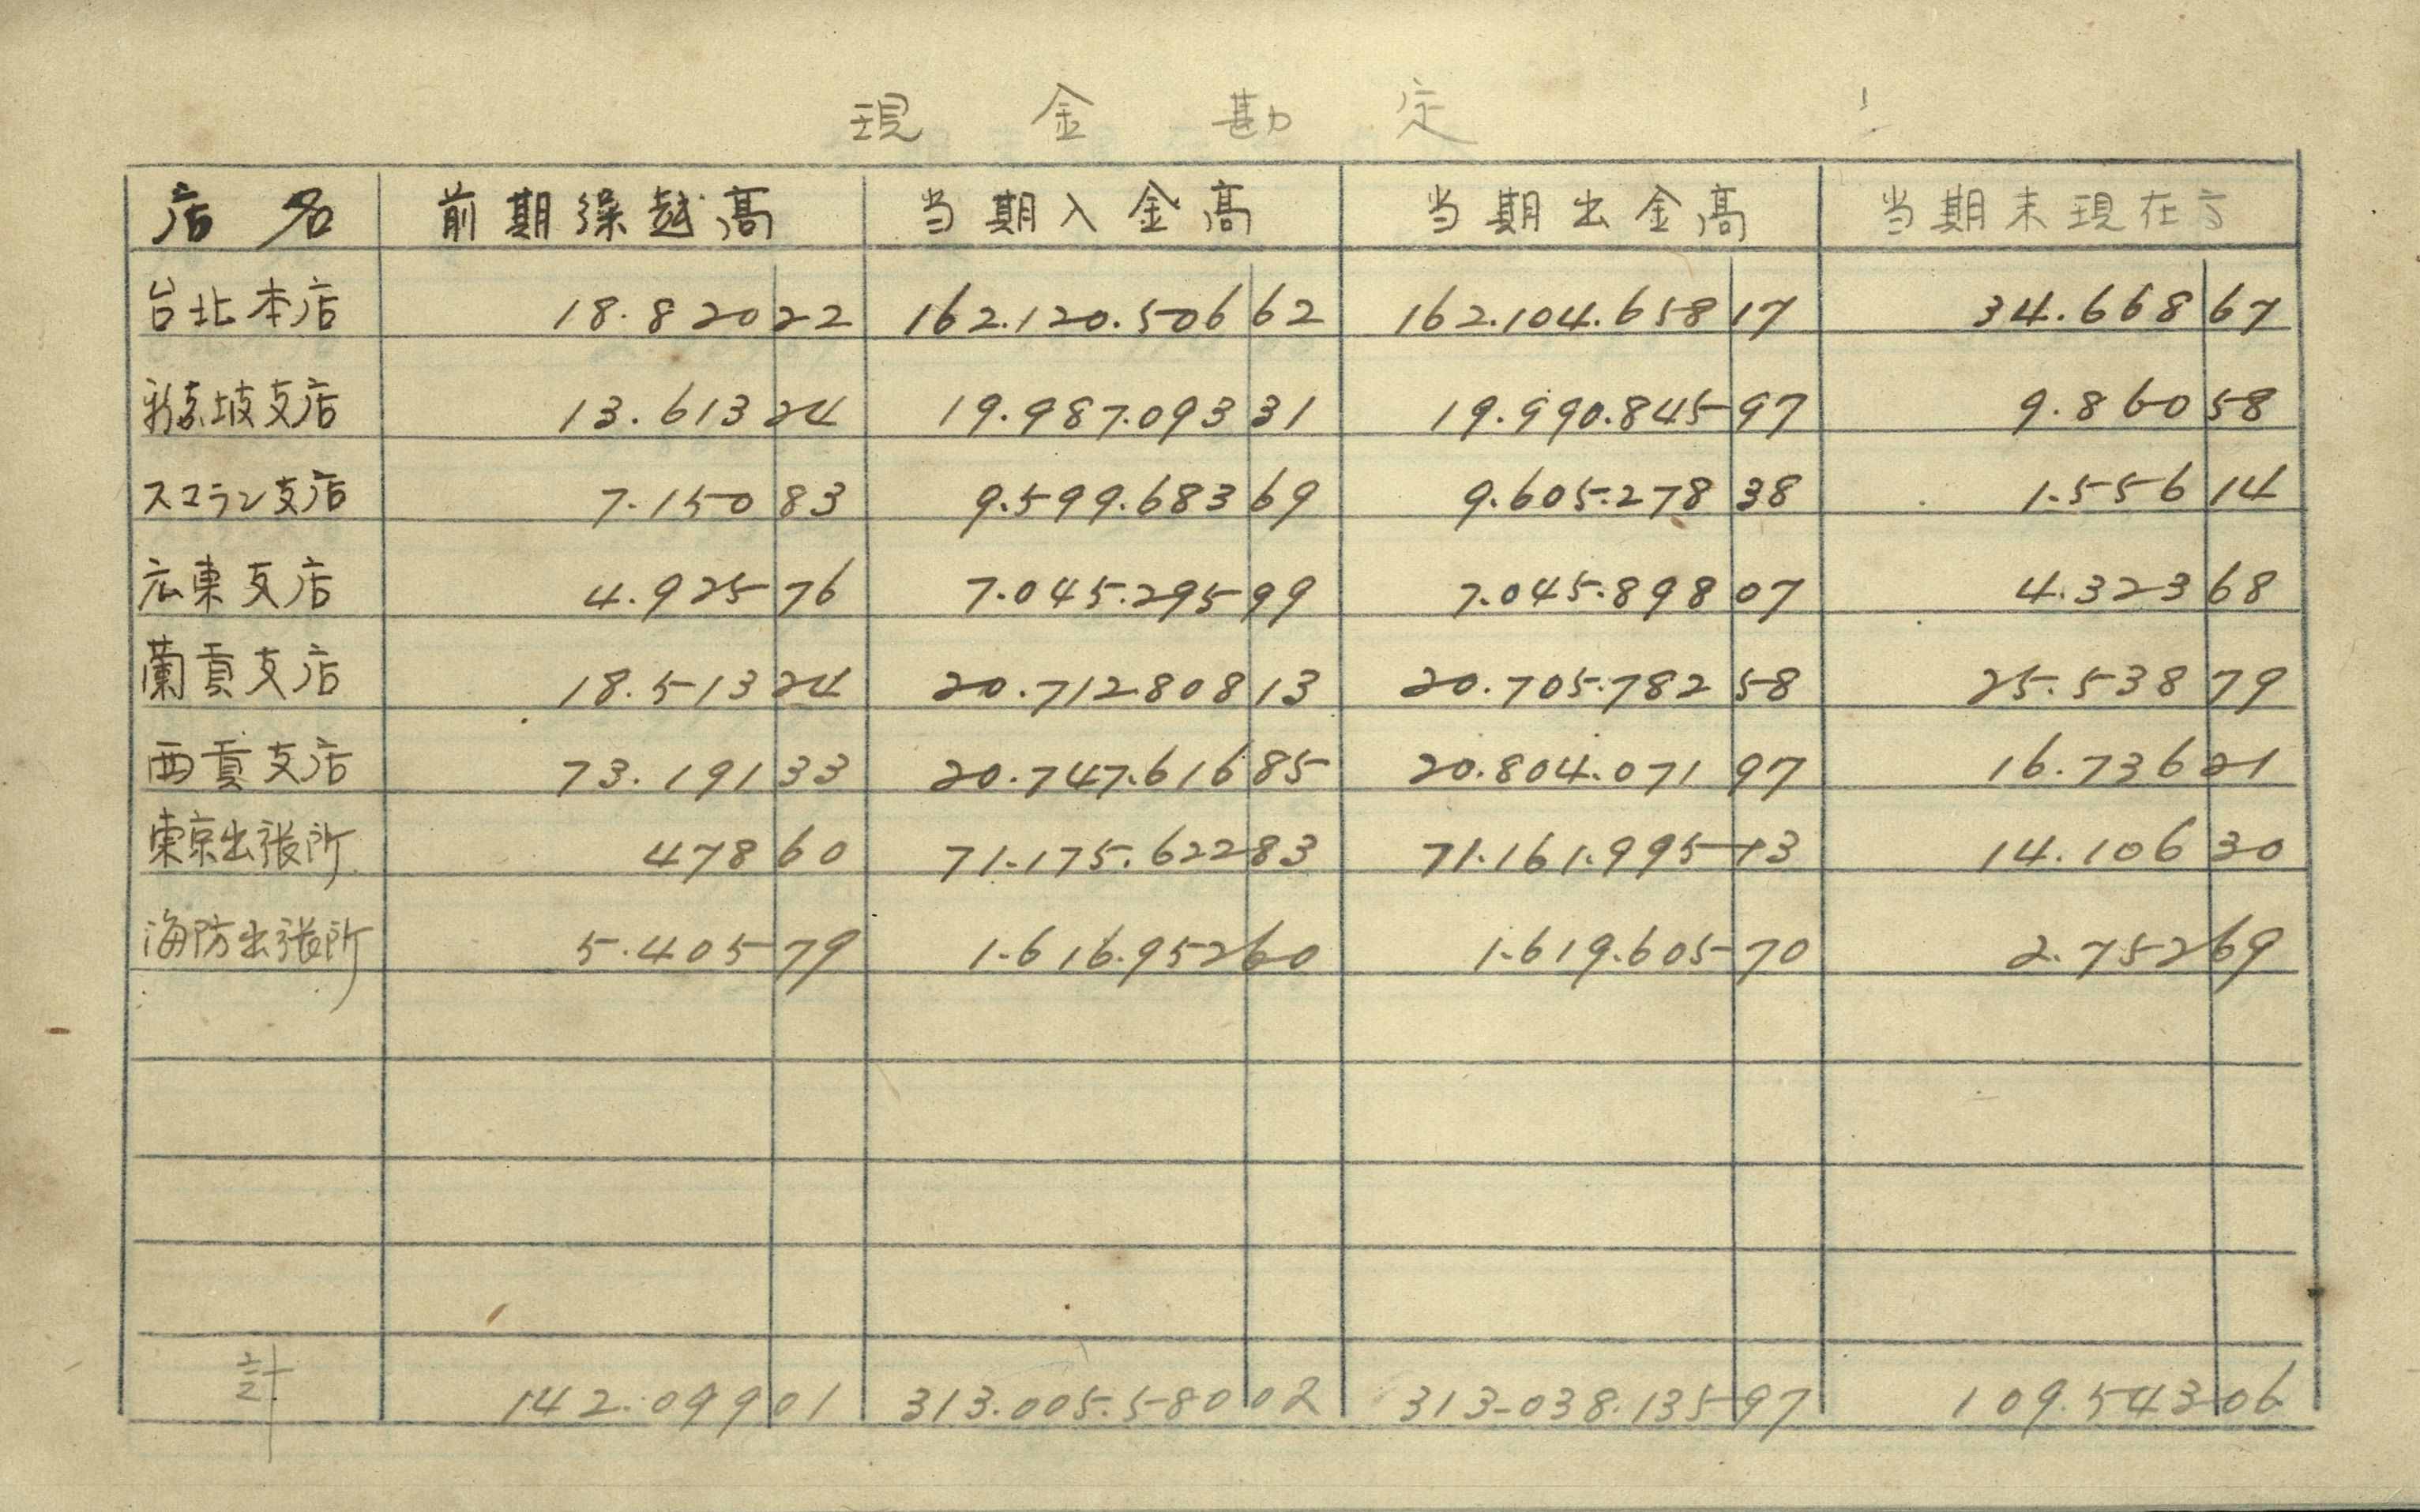 現金勘定
店名 前期繰越高 当期入金高 当期出金高 当期末現在高
台北本店 18.820 22 162.120.506 62 162.104.658 17 34.668 67
新嘉坡支店 13.613 24 19.987.093 31 19.990.845 97 9.860 58
スマラン支店 7.150 83 9.599.683 69 9.605.278 38 1.556 14
広東支店 4.925 76 7.045.295 99 7.045.898 07 4.323 68
蘭貢支店 18.513 24 20.712808 13 20.705.782 58 25.538 79
西貢支店 73.191 33 20.747.616 85 20.804.071 97 16.736 21
東京出張所 478 60 71.175.622 83 71.161.995 13 14.106 30
海防出張所 5.405 79 1.616.952 60 1.619.605 70 2.752 69
計 142.099 01 313.005.580 02 313.038.135 97 109.543 06